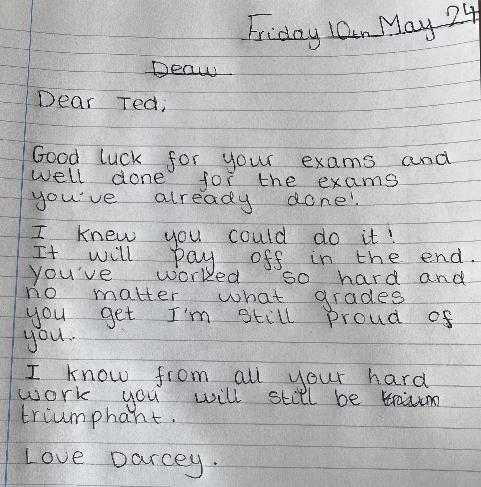 Friday 10th May 24
Deau
Dear Ted,
Good luck for your exams and
well done for the exams
you've already done!
I knew you could do it!
It will pay off in the end.
you've worked so hard and
no matter what grades
you get I'm still proud of
you.
I know from all your hard
work you will still be
triumphant.
Love Darcey.